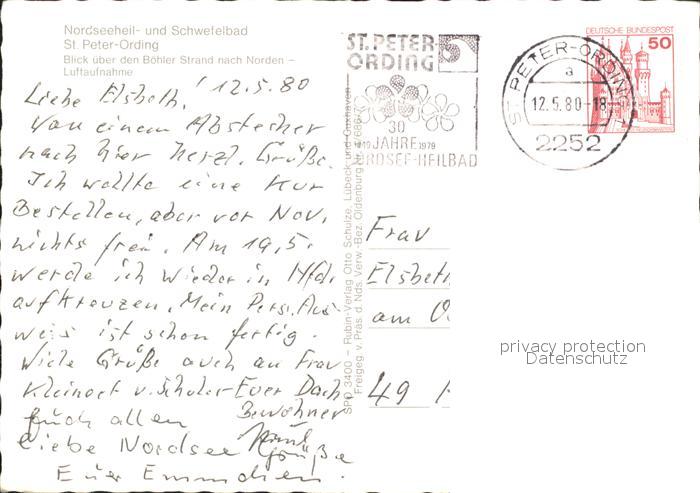 Nordseeheil- und Schwefelbad
St. Peter-Ording
Blick über den Böhler Strand nach Norden –
Luftaufnahme
12.5.80
Liebe Elsbeth!
Von einem Abstecher
nach hier herzl. Grüße.
Ich wollte eine Kur
Bestellen, aber vor Nov.
nichts frei. Am 19.5.
werde ich wieder in Hfd.
aufkreuzen. Mein Pers. Aus-
weis ist schon fertig.
Viele Grüße auch an Frau
v. Schuler-Euer Dach
Bewohner
Euch allen
liebe Nordsee
Grüße
Euer Emmchen.
SPO 3400 – Rubin-Verlag Otto Schulze, Lübeck und Cuxhaven
Freigeg. v. Präs. d. Nds. Verw.-Bez. Oldenburg
ST. PETER-
ORDING
30
1949 JAHRE 1979
NORDSEE-HEILBAD
ST. PETER-ORDING 1
a
12.5.80-18
2252
DEUTSCHE BUNDESPOST
50
Frau
Elsbeth
am
49
privacy protection
Datenschutz